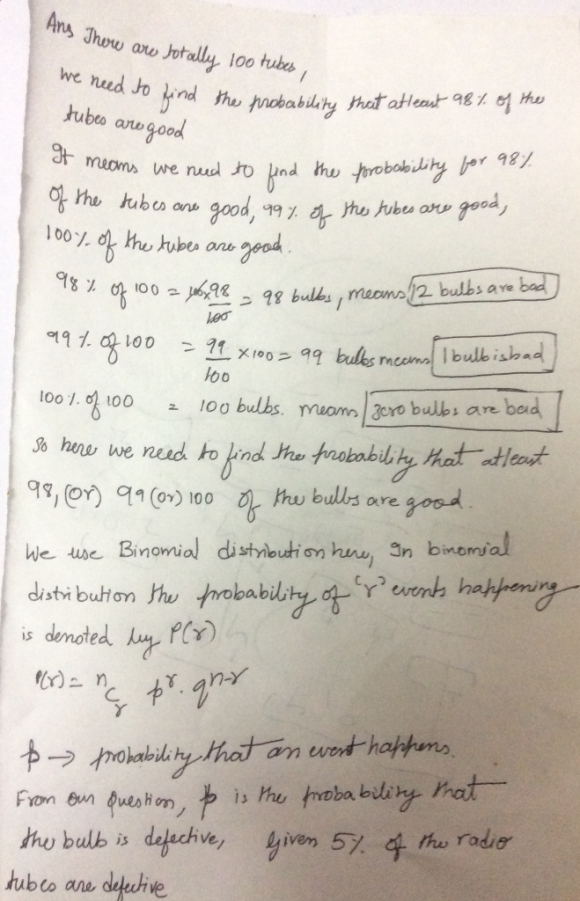 Ans There are totally 100 tubes,
we need to find the probability that atleast 98% of the
tubes are good
It means we need to find the probability for 98%
of the tubes are good, 99% of the tubes are good,
100% of the tubes are good.
98% of 100 = 100×98/100 = 98 bulbs, means 2 bulbs are bad
99% of 100 = 99/100 ×100 = 99 bulbs means 1 bulb is bad
100% of 100 = 100 bulbs. means zero bulbs are bad
So here we need to find the probability that atleast
98, (or) 99 (or) 100 of the bulbs are good.
We use Binomial distribution here, In binomial
distribution the probability of 'r' events happening
is denoted by P(r)
P(r) = nCr p^r . q^n-r
p → probability that an event happens.
From our question, p is the probability that
the bulb is defective, given 5% of the radio
tubes are defective